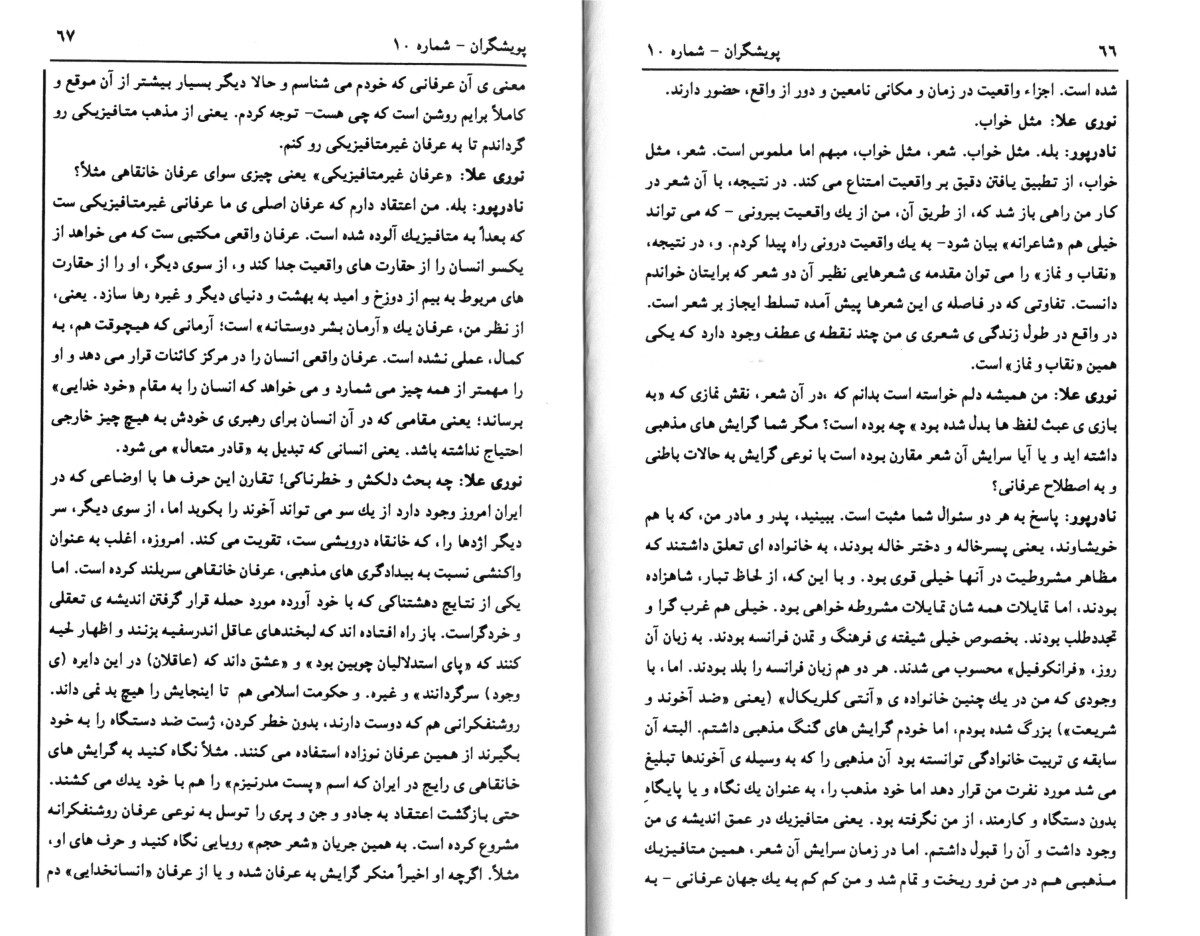 ۶۶
پویشگران – شماره ۱۰
شده است. اجزاء واقعیت در زمان و مکانی نامعین و دور از واقع، حضور دارند.
نوری علا: مثل خواب.
نادرپور: بله. مثل خواب. شعر، مثل خواب، مبهم اما ملموس است. شعر، مثل
خواب، از تطبیق یافتن دقیق بر واقعیت امتناع می کند. در نتیجه، با آن شعر در
کار من راهی باز شد که، از طریق آن، من از یك واقعیت بیرونی – که می تواند
خیلی هم «شاعرانه» بیان شود– به یك واقعیت درونی راه پیدا کردم. و، در نتیجه،
«نقاب و نماز» را می توان مقدمه ی شعرهایی نظیر آن دو شعر که برایتان خواندم
دانست. تفاوتی که در فاصله ی این شعرها پیش آمده تسلط ایجاز بر شعر است.
در واقع در طول زندگی ی شعری ی من چند نقطه ی عطف وجود دارد که یکی
همین «نقاب و نماز» است.
نوری علا: من همیشه دلم خواسته است بدانم که ،در آن شعر، نقش نمازی که «به
بازی ی عبث لفظ ها بدل شده بود» چه بوده است؟ مگر شما گرایش های مذهبی
داشته اید و یا آیا سرایش آن شعر مقارن بوده است با نوعی گرایش به حالات باطنی
و به اصطلاح عرفانی؟
نادرپور: پاسخ به هر دو سئوال شما مثبت است. ببینید، پدر و مادر من، که با هم
خویشاوند، یعنی پسرخاله و دختر خاله بودند، به خانواده ای تعلق داشتند که
مظاهر مشروطیت در آنها خیلی قوی بود. و با این که، از لحاظ تبار، شاهزاده
بودند، اما تمایلات همه شان تمایلات مشروطه خواهی بود. خیلی هم غرب گرا و
تجددطلب بودند. بخصوص خیلی شیفته ی فرهنگ و تمدن فرانسه بودند. به زبان آن
روز، «فرانکوفیل» محسوب می شدند. هر دو هم زبان فرانسه را بلد بودند. اما، با
وجودی که من در یك چنین خانواده ی «آنتی کلریکال» (یعنی «ضد آخوند و
شریعت») بزرگ شده بودم، اما خودم گرایش های گنگ مذهبی داشتم. البته آن
سابقه ی تربیت خانوادگی توانسته بود آن مذهبی را که به وسیله ی آخوندها تبلیغ
می شد مورد نفرت من قرار دهد اما خود مذهب را، به عنوان یك نگاه و یا پایگاهِ
بدون دستگاه و کارمند، از من نگرفته بود. یعنی متافیزیك در عمق اندیشه ی من
وجود داشت و آن را قبول داشتم. اما در زمان سرایش آن شعر، همین متافیزیك
مذهبی هم در من فرو ریخت و تمام شد و من کم کم به یك جهان عرفانی – به
۶۷
پویشگران – شماره ۱۰
معنی ی آن عرفانی که خودم می شناسم و حالا دیگر بسیار بیشتر از آن موقع و
کاملاً برایم روشن است که چی هست– توجه کردم. یعنی از مذهب متافیزیکی رو
گرداندم تا به عرفان غیرمتافیزیکی رو کنم.
نوری علا: «عرفان غیرمتافیزیکی» یعنی چیزی سوای عرفان خانقاهی مثلاً؟
نادرپور: بله. من اعتقاد دارم که عرفان اصلی ی ما عرفانی غیرمتافیزیکی ست
که بعداً به متافیزیك آلوده شده است. عرفان واقعی مکتبی ست که می خواهد از
یکسو انسان را از حقارت های واقعیت جدا کند و، از سوی دیگر، او را از حقارت
های مربوط به بیم از دوزخ و امید به بهشت و دنیای دیگر و غیره رها سازد. یعنی،
از نظر من، عرفان یك «آرمان بشر دوستانه» است؛ آرمانی که هیچوقت هم، به
کمال، عملی نشده است. عرفان واقعی انسان را در مرکز کائنات قرار می دهد و او
را مهمتر از همه چیز می شمارد و می خواهد که انسان را به مقام «خود خدایی»
برساند؛ یعنی مقامی که در آن انسان برای رهبری ی خودش به هیچ چیز خارجی
احتیاج نداشته باشد. یعنی انسانی که تبدیل به «قادر متعال» می شود.
نوری علا: چه بحث دلکش و خطرناکی! تقارن این حرف ها با اوضاعی که در
ایران امروز وجود دارد از یك سو می تواند آخوند را بکوبد اما، از سوی دیگر، سر
دیگر اژدها را، که خانقاه درویشی ست، تقویت می کند. امروزه، اغلب به عنوان
واکنشی نسبت به بیدادگری های مذهبی، عرفان خانقاهی سربلند کرده است. اما
یکی از نتایج دهشتناکی که با خود آورده مورد حمله قرار گرفتن اندیشه ی تعقلی
و خردگراست. باز راه افتاده اند که لبخندهای عاقل اندرسفیه بزنند و اظهار لحیه
کنند که «پای استدلالیان چوبین بود» و «عشق داند که (عاقلان) در این دایره (ی
وجود) سرگردانند» و غیره. و حکومت اسلامی هم تا اینجایش را هیچ بد نمی داند.
روشنفکرانی هم که دوست دارند، بدون خطر کردن، ژست ضد دستگاه را به خود
بگیرند از همین عرفان نوزاده استفاده می کنند. مثلاً نگاه کنید به گرایش های
خانقاهی ی رایج در ایران که اسم «پست مدرنیزم» را هم با خود یدك می کشند.
حتی بازگشت اعتقاد به جادو و جن و پری را توسل به نوعی عرفان روشنفکرانه
مشروع کرده است. به همین جریان «شعر حجم» رویایی نگاه کنید و حرف های او،
مثلاً. اگرچه او اخیراً منکر گرایش به عرفان شده و یا از عرفان «انسانخدایی» دم